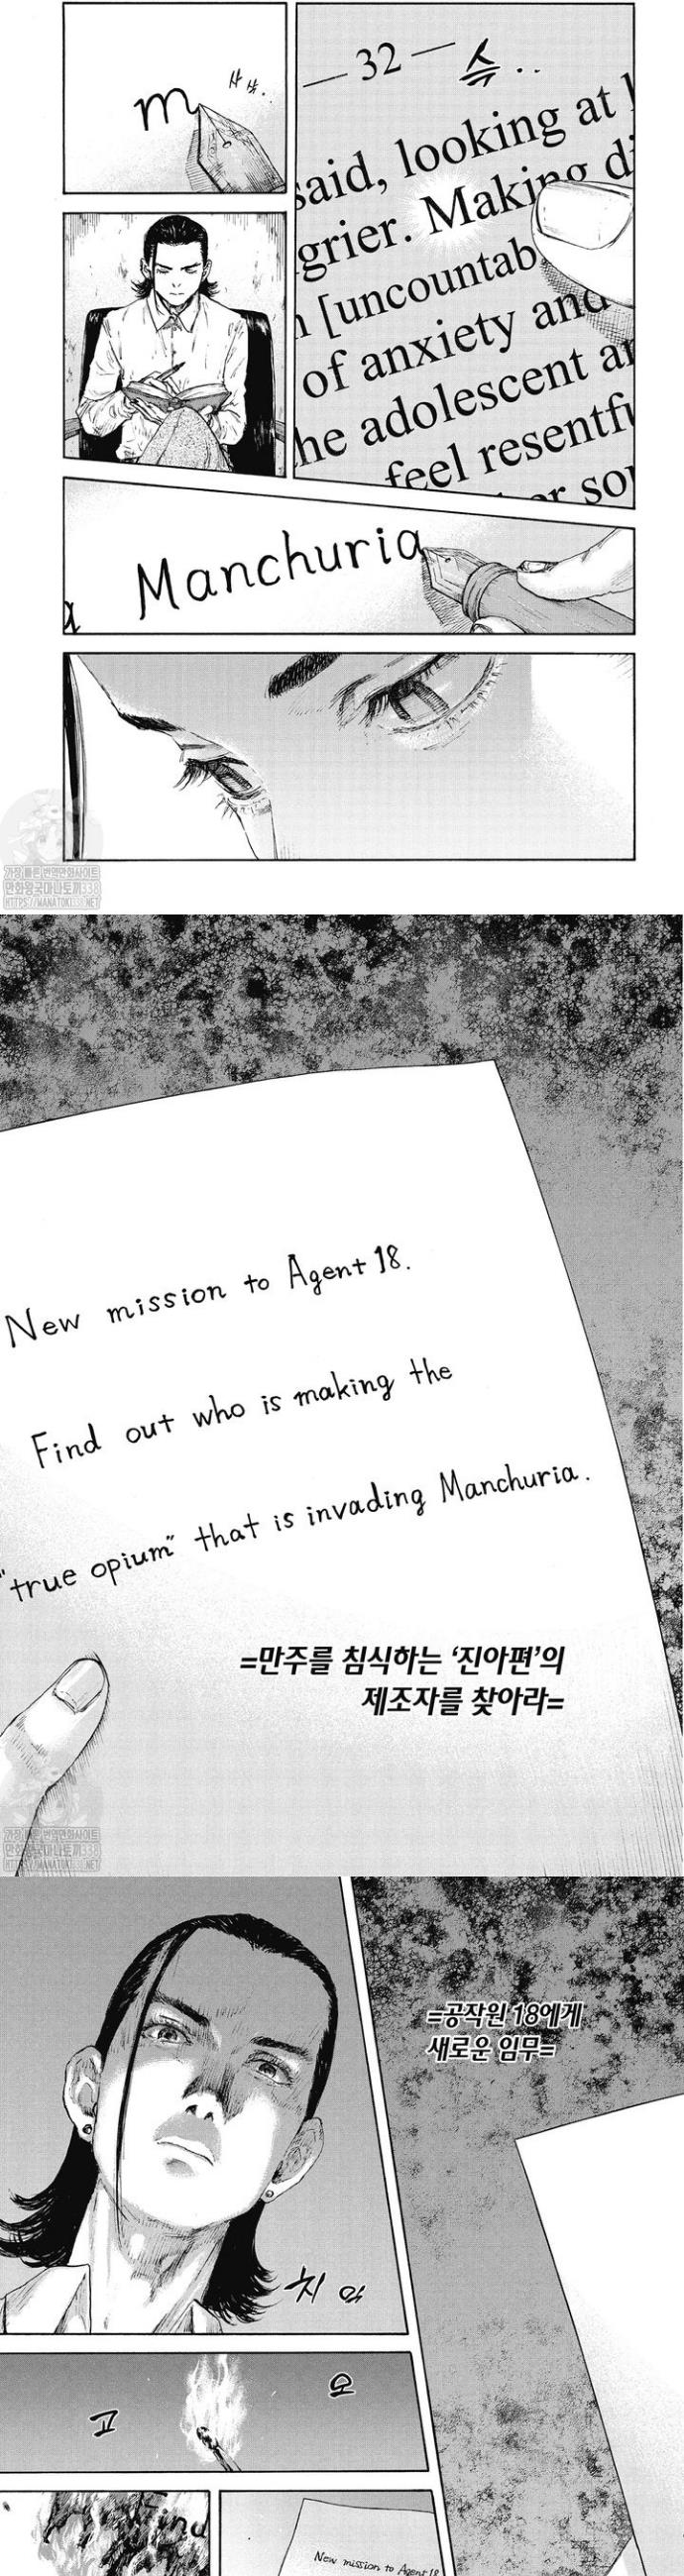 m
사삭..
— 32 —
슥..
said, looking at
grier. Making di
[uncountab
of anxiety and
he adolescent
feel resentfu
or so
a
Manchuria
가장 빠른 번역만화사이트
만화왕국마나토끼338
HTTPS://MANATOKI338.NET
New mission to Agent 18.
Find out who is making the
"true opium" that is invading Manchuria.
=만주를 침식하는 ‘진아편’의
제조자를 찾아라=
가장 빠른 번역만화사이트
만화왕국마나토끼338
HTTPS://MANATOKI338.NET
=공작원 18에게
새로운 임무=
치익
고오
Find
New mission to Agent 18